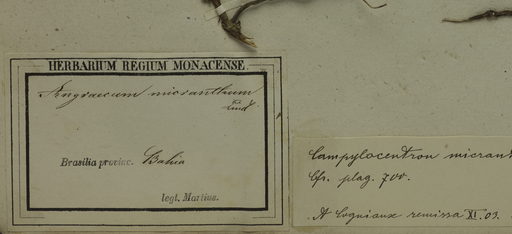 HERBARIUM REGIUM MONACENSE.
Angraecum micranthum
Lindl
Brasilia provinc. Bahia
legt. Martius.
Campylocentron micrant
Cfr. plag. 700.
A Cogniaux remissa XI. 03.